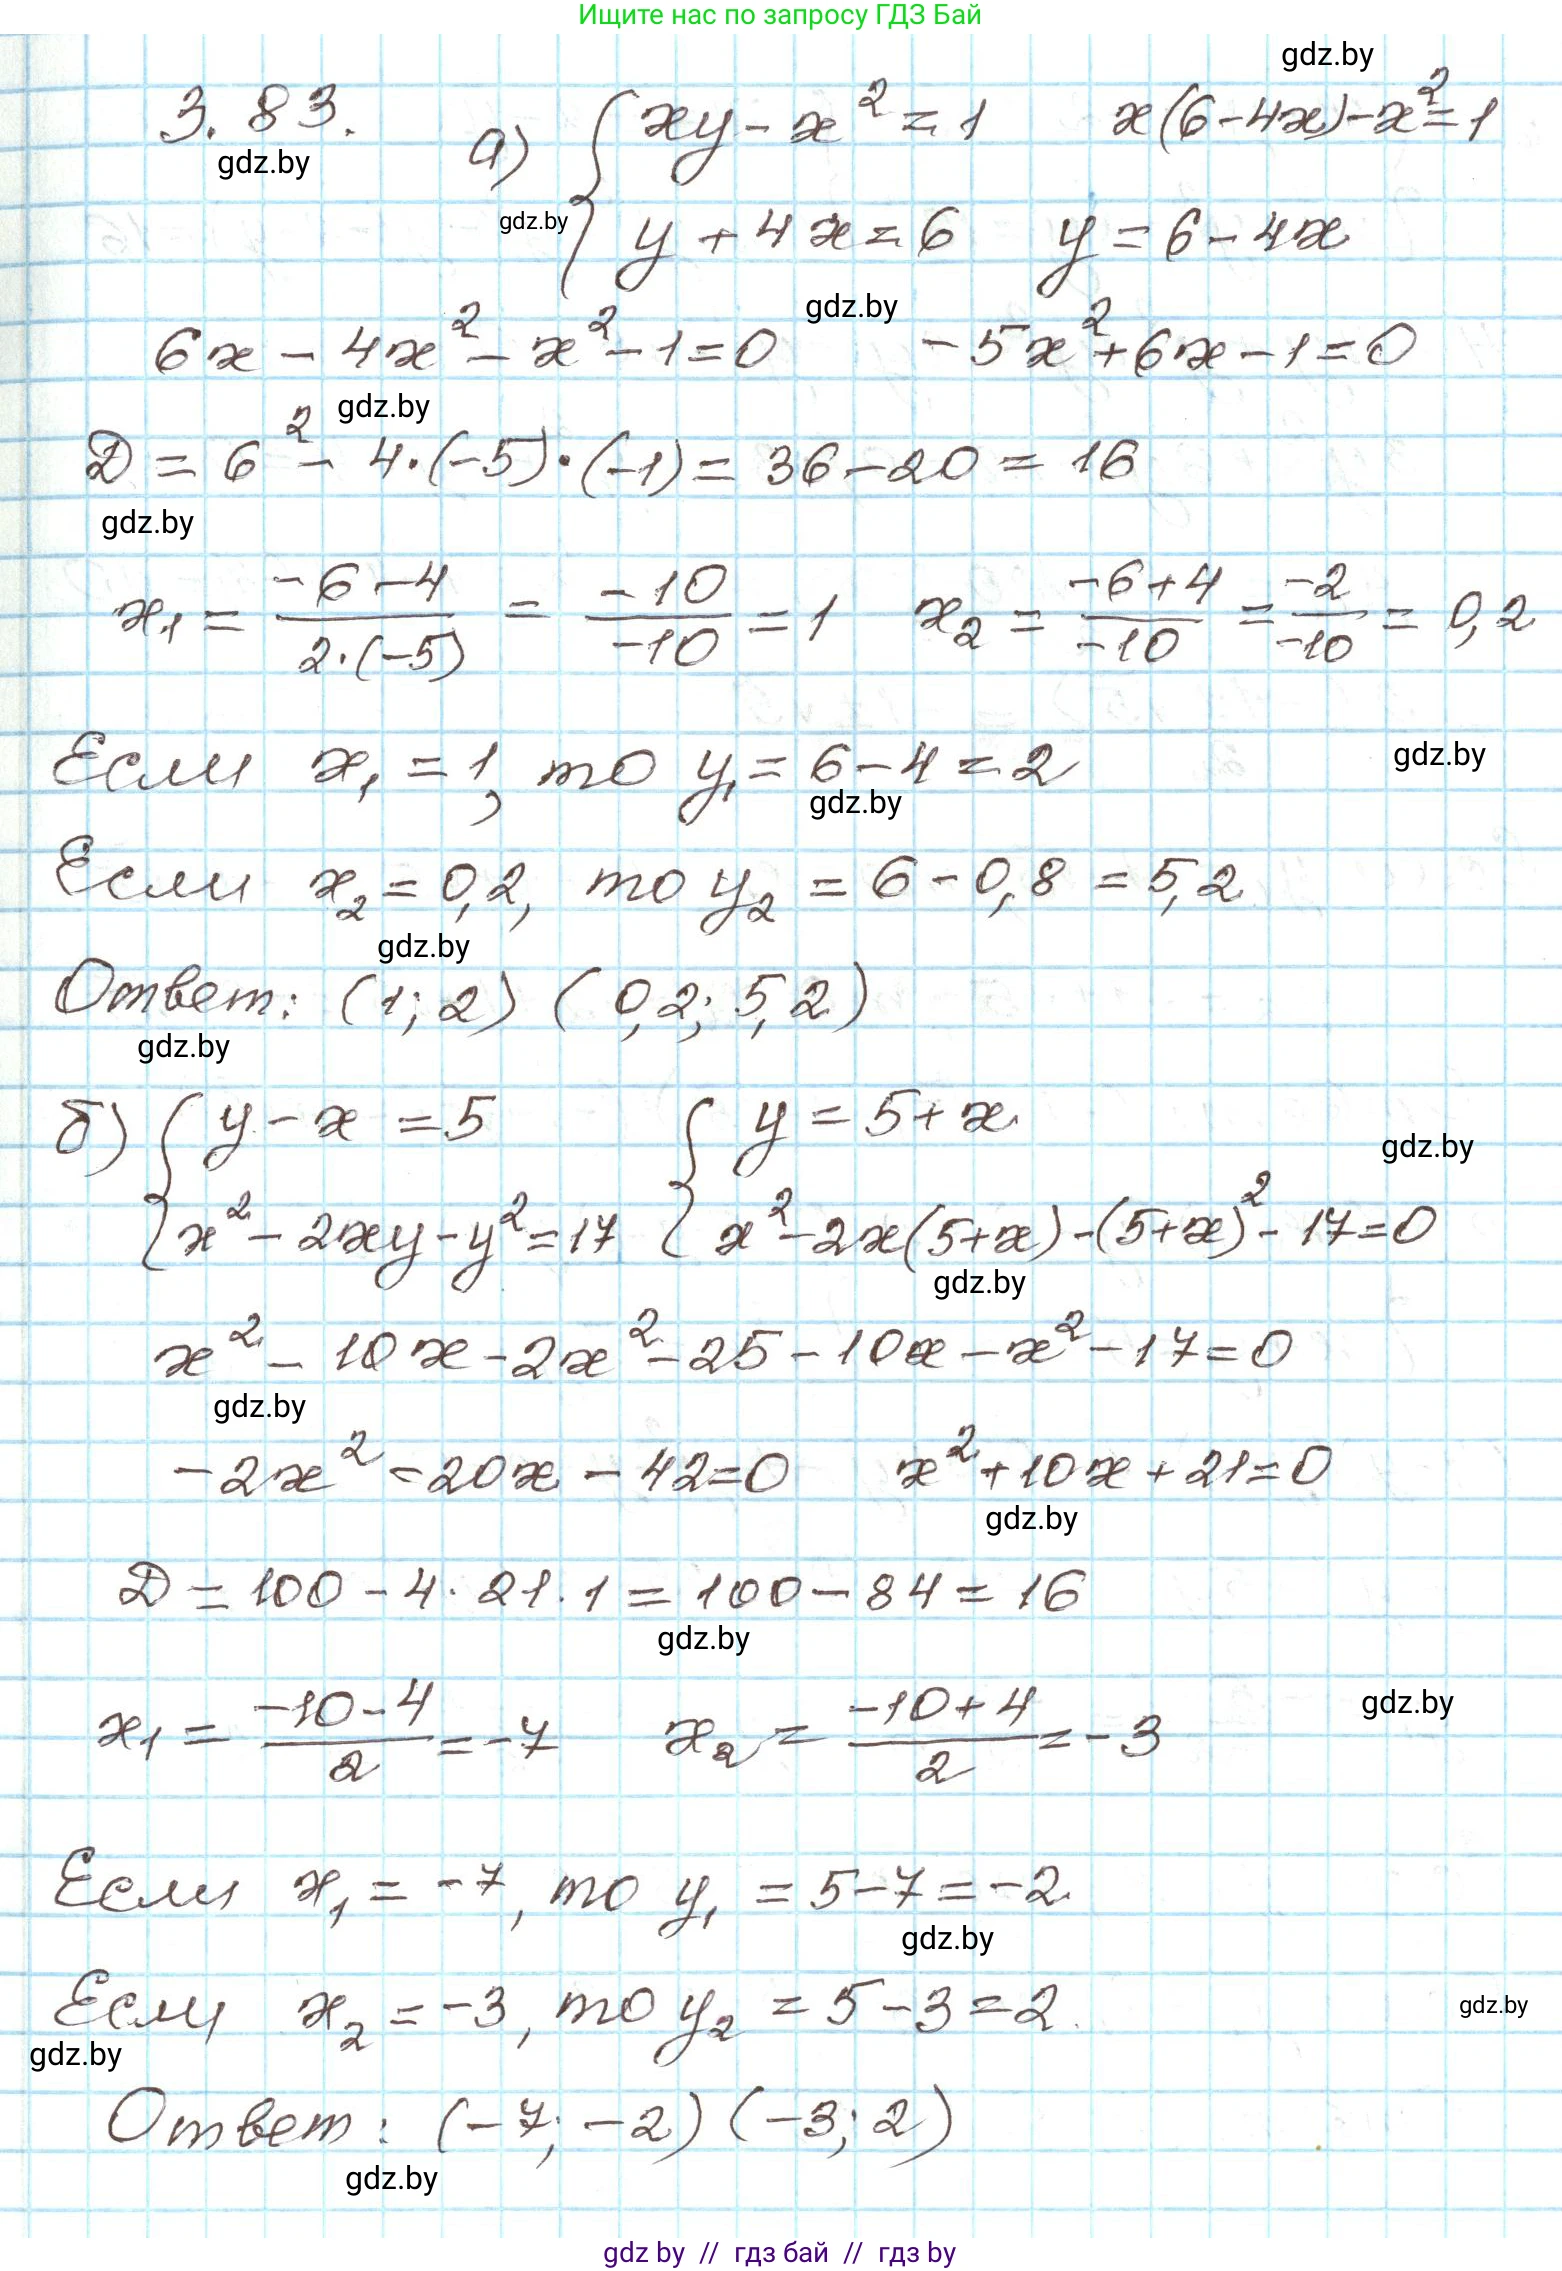 Ищите нас по запросу ГДЗ Бай
gdz.by
3.83. а) { xy - x² = 1    x(6 - 4x) - x² = 1
gdz.by
gdz.by
y + 4x = 6    y = 6 - 4x
gdz.by
6x - 4x² - x² - 1 = 0    -5x² + 6x - 1 = 0
gdz.by
D = 6² - 4·(-5)·(-1) = 36 - 20 = 16
gdz.by
x₁ = (-6-4)/(2·(-5)) = (-10)/(-10) = 1    x₂ = (-6+4)/(-10) = (-2)/(-10) = 0,2
Если x₁ = 1, то y₁ = 6 - 4 = 2
gdz.by
gdz.by
Если x₂ = 0,2, то y₂ = 6 - 0,8 = 5,2
gdz.by
Ответ: (1; 2) (0,2; 5,2)
gdz.by
б) { y - x = 5    { y = 5 + x
gdz.by
x² - 2xy - y² = 17    x² - 2x(5+x) - (5+x)² - 17 = 0
gdz.by
x² - 10x - 2x² - 25 - 10x - x² - 17 = 0
gdz.by
-2x² - 20x - 42 = 0    x² + 10x + 21 = 0
gdz.by
D = 100 - 4·21·1 = 100 - 84 = 16
gdz.by
x₁ = (-10-4)/2 = -7    x₂ = (-10+4)/2 = -3
gdz.by
Если x₁ = -7, то y₁ = 5 - 7 = -2
gdz.by
Если x₂ = -3, то y₂ = 5 - 3 = 2
gdz.by
gdz.by
Ответ: (-7; -2) (-3; 2)
gdz.by
gdz by // гдз бай // gdz by